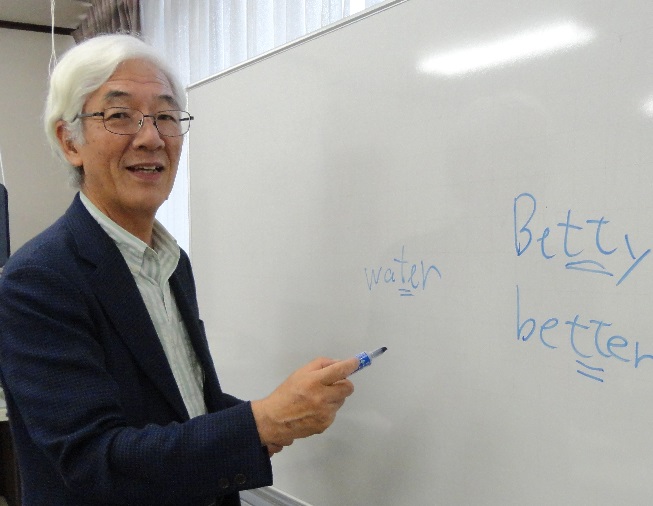 water
Betty
better